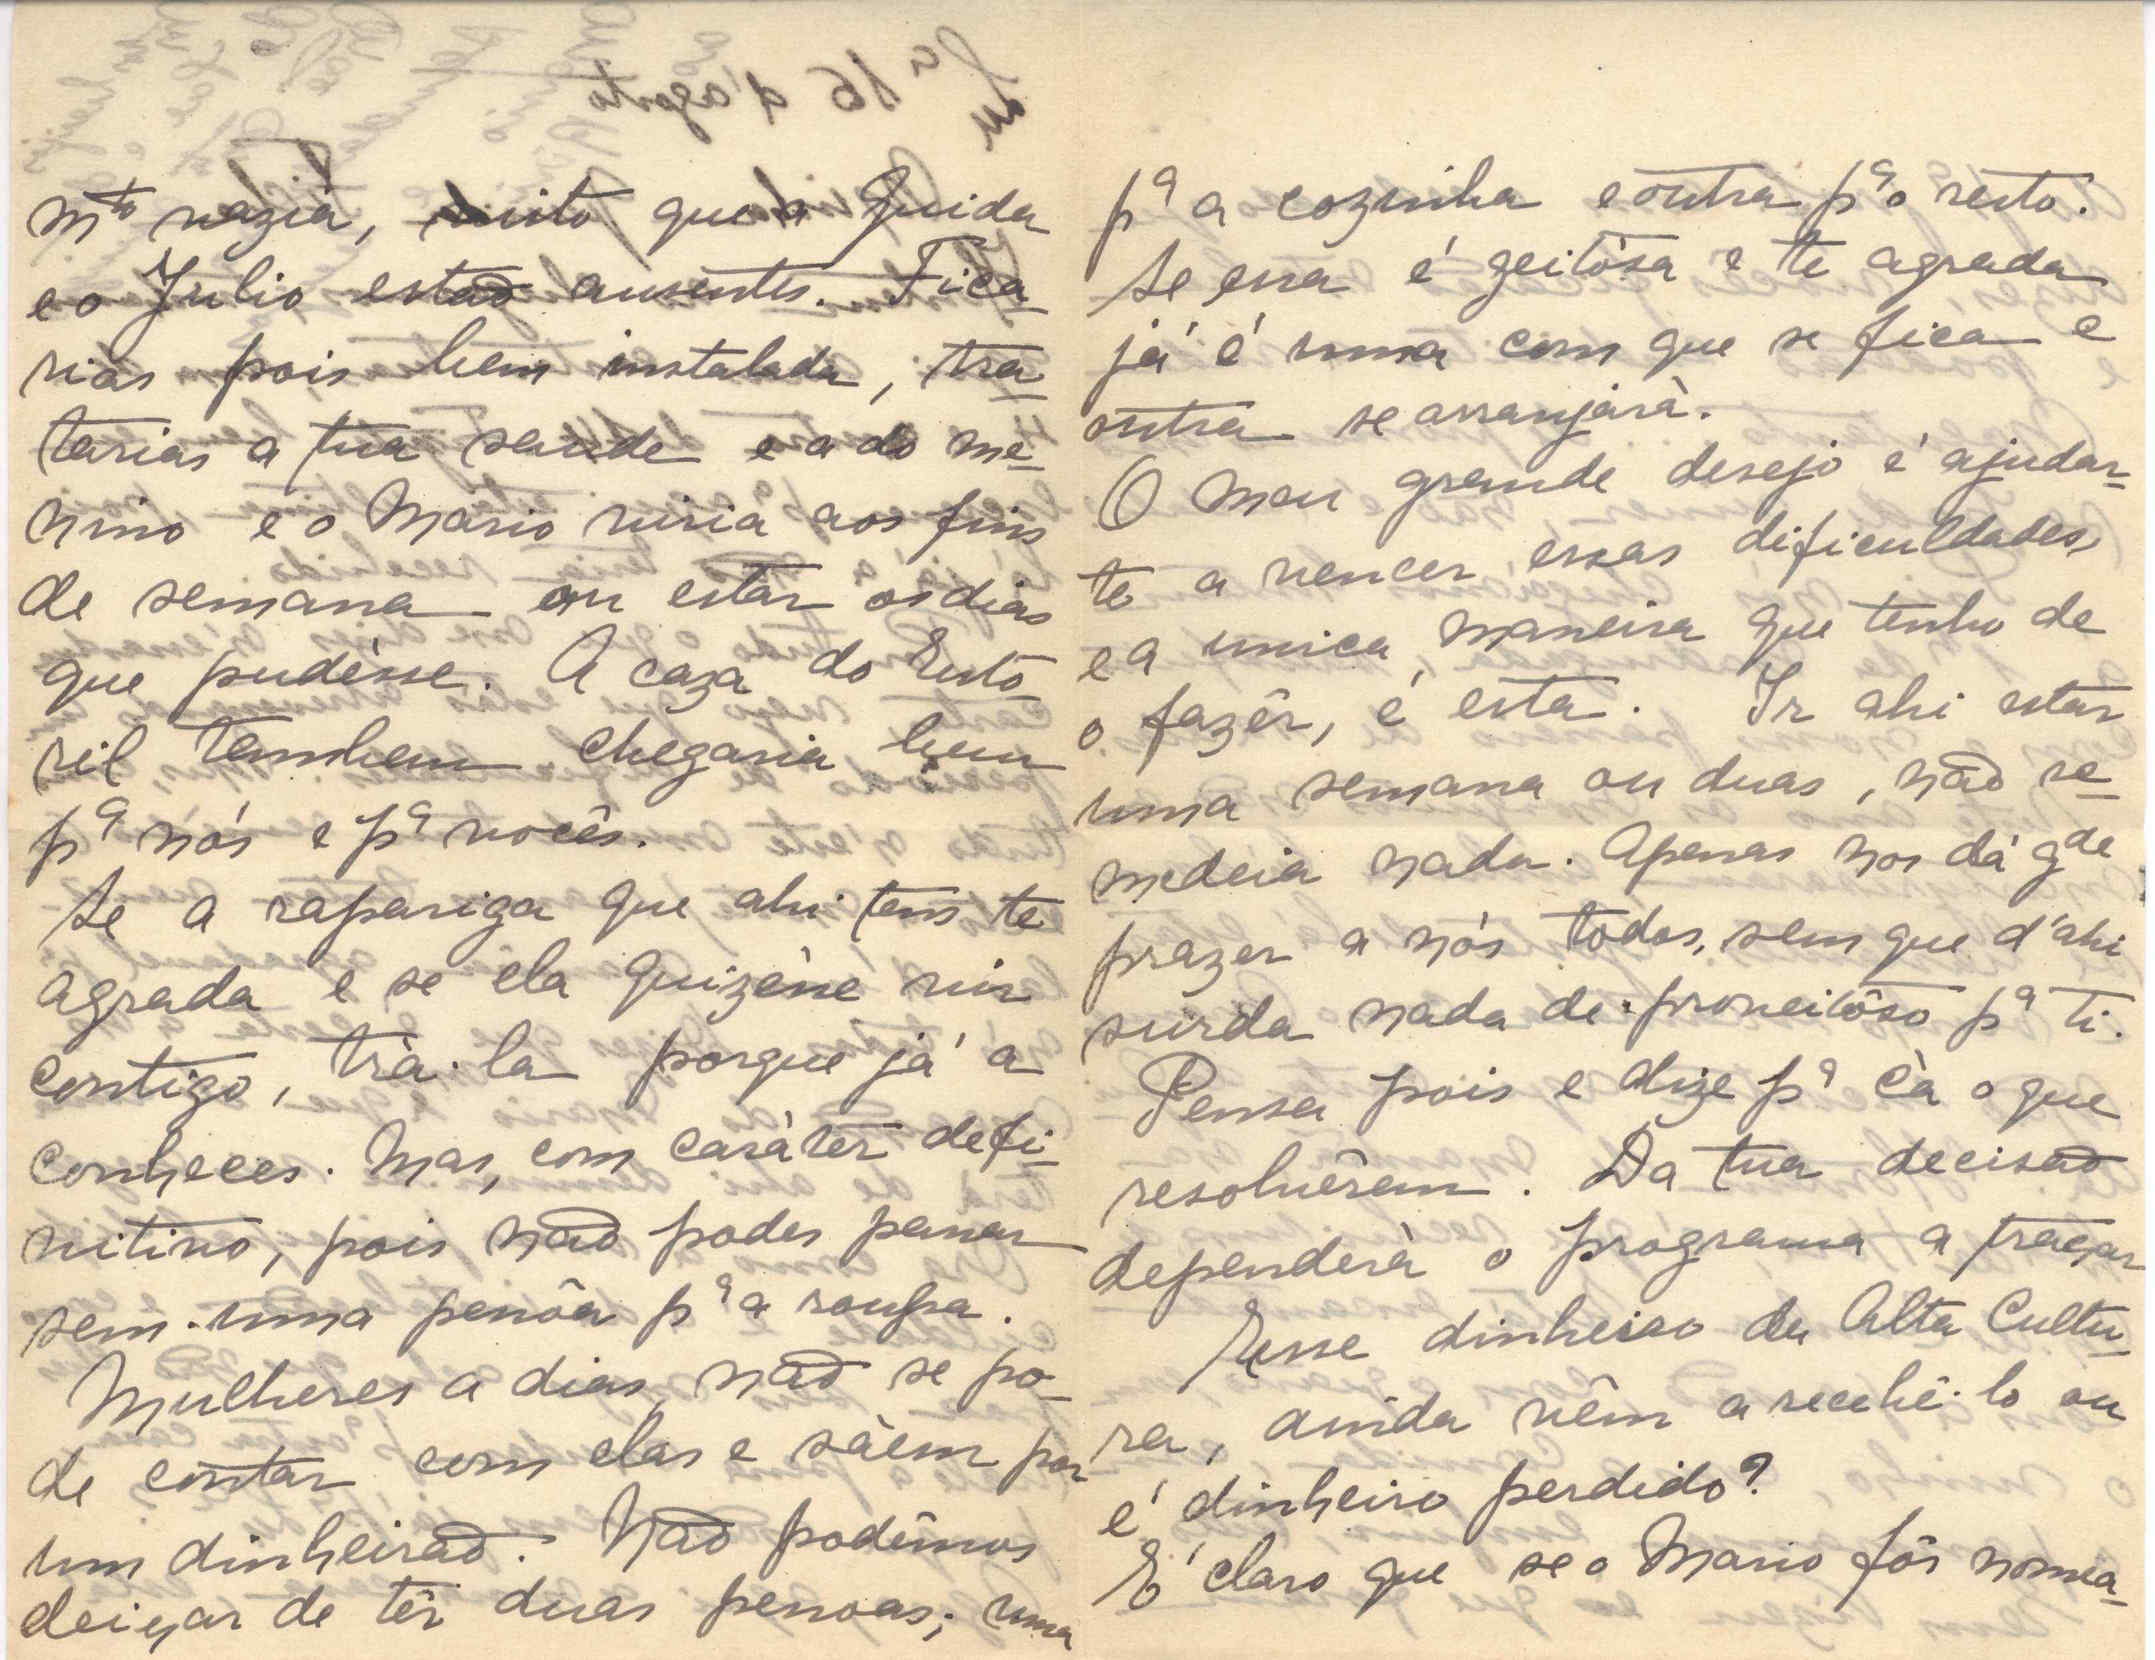 mto vazia, visto que a Guida
e o Julio estão ausentes. Fica-
rias pois bem instalada, tra-
tarias a tua saude e a do me-
nino e o Mário viria aos fins
de semana ou estar os dias
que pudésse. A caza do Esto-
ril tambem chegaria bem
pª nós e pª vocês.
Se a rapariga que ahi tens te
agrada e se ela quizésse vir
contigo, trà-la porque já a
conheces. Mas, com caràter defi-
nitivo, pois não podes passar
sem uma pessôa pª a roupa.
Mulheres a dias, não se po-
de contar com elas e sàem por
um dinheirão. Não podêmos
deixar de têr duas pessoas; uma
pª a cozinha e outra pª o resto.
Se essa é geitósa e te agrada
já é uma com que se fica e
outra se arranjàrà.
O meu grande desejo é ajudar-
te a vencer essas dificuldades,
e a unica maneira que tenho de
o fazêr, é esta. Ir ahi estar
uma semana ou duas, não re-
medeia nada. Apenas nos dá gde
prazer a nós todos, sem que d'ahi
surda nada de proveitôso pª ti.
Pensa pois e dize pª cà o que
resolvêrem. Da tua decisão
dependerà o programa a traçar
Esse dinheiro da Alta Cultu-
ra, ainda vêm a recebê-lo ou
é dinheiro perdido?
E' claro que se o Mario fôr nomea-